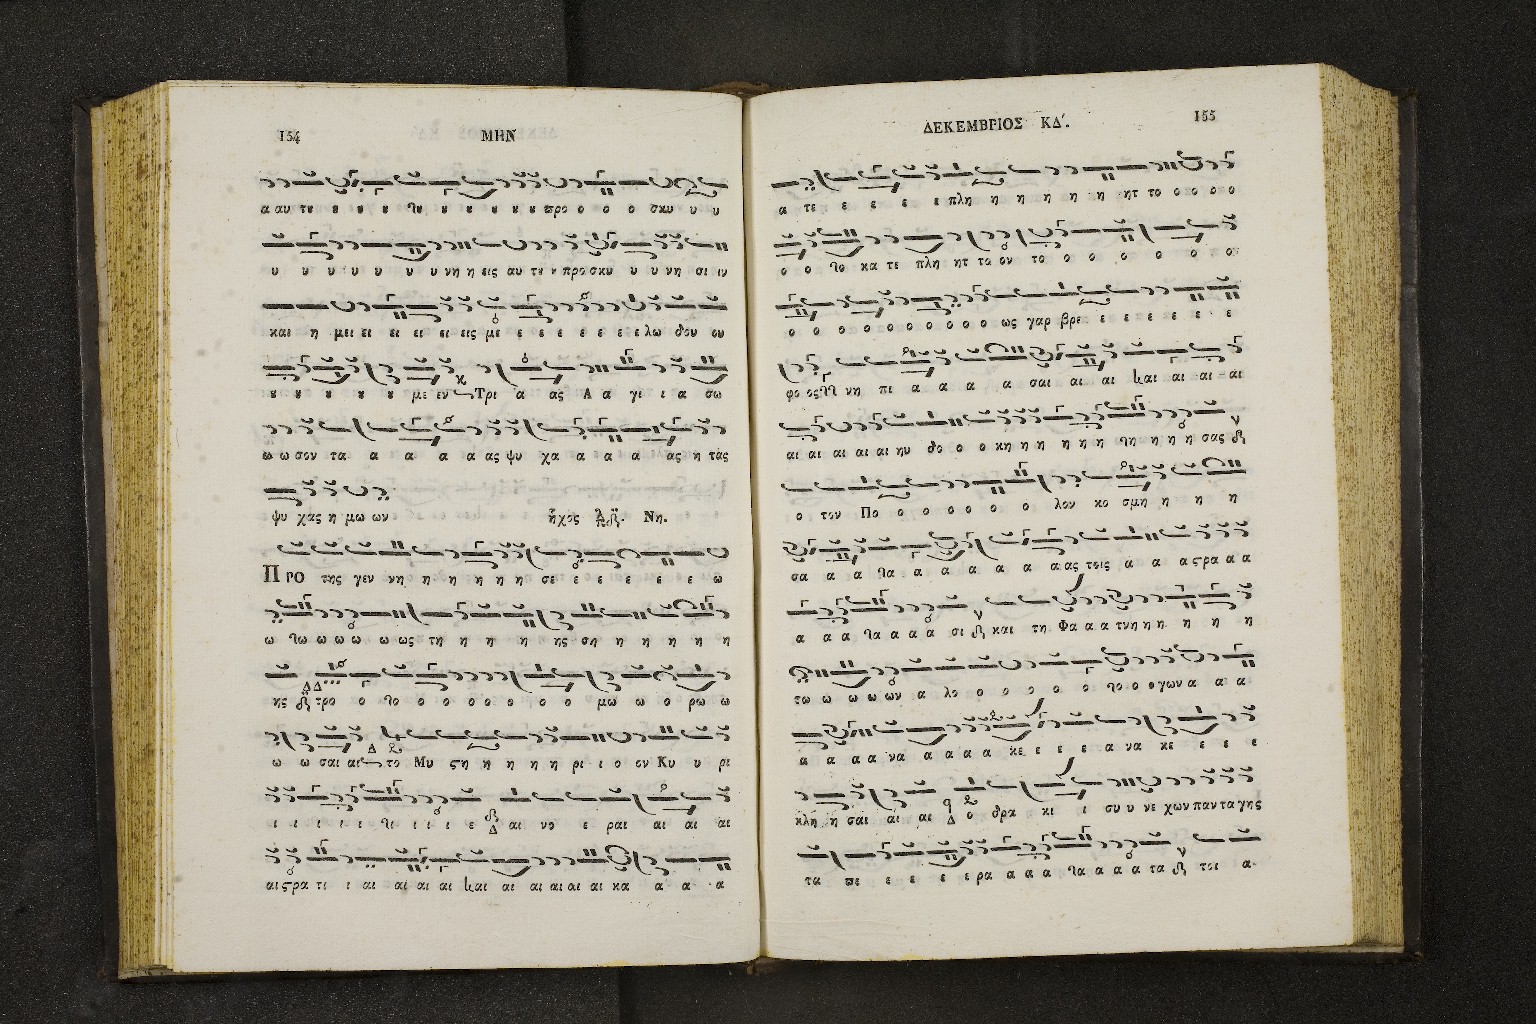 154 ΜΗΝ
α αυ τȣ ȣ ȣ ȣ ȣ ȣ ȣ ȣ ȣ ȣ προ ο ο ο σκυ υ υ
υ υ υ υ υ υ υ νη η εις αυ τον προσκυ υ υ νη σι ιν
και η μει ει ει ει ει εις με ε ε ε ε ε ε ε λω δου ου
ȣ ȣ ȣ ȣ ȣ με εν Τρι α ας Α α γι ι α σω
ω ω σον τα α α α α ας ψυ χα α α α ας η τας
ψυ χας η μω ων ἦχος Νη.
Προ της γεν νη η η η η η σε ε ε ε ε ε ω
ω ω ω ω ω ω ως τη η η η ης ση η η η η η
ης τρο ο ο ο ο ο ο ο ο μω ω ο ρω ω
ω ω σαι αι το Μυ ϛη η η η η ρι ι ο ον Κυ υ ρι
ι ι ι ι ι ι ι ι ε αι νο ε ραι αι αι αι
αι ϛρα τι ι αι αι αι αι και αι αι αι αι αι κα α α α
ΔΕΚΕΜΒΡΙΟΣ ΚΔʹ. 155
α τε ε ε ε ε πλη η η η η η ητ το ο ο ο ο
ο ο ο κα τε πλη ητ το ον το ο ο ο ο ο ο
ο ο ο ο ο ο ο ο ο ως γαρ βρε ε ε ε ε ε ε
φο ος νη πι α α α α σαι αι αι και αι αι αι
αι αι αι αι αι ηυ δο ο ο κη η η η η η η η η σας
ο τον Πο ο ο ο ο ο ο λον κο σμη η η η
σα α α α α α α α α ας τοις α α α ϛρα α α
α α α α α α α σι και τη Φα α α τνη η η η η η
τω ω ω ω ων α λο ο ο ο ο ο ο ο ο γων α α α
α α α α να α α α α κε ε ε ε α να κε ε ε ε
κλη η σαι αι αι ο δρα κι ι συ υ νε χων παν τα γης
τα πε ε ε ε ε ρα α α α α α α α τα τοι α